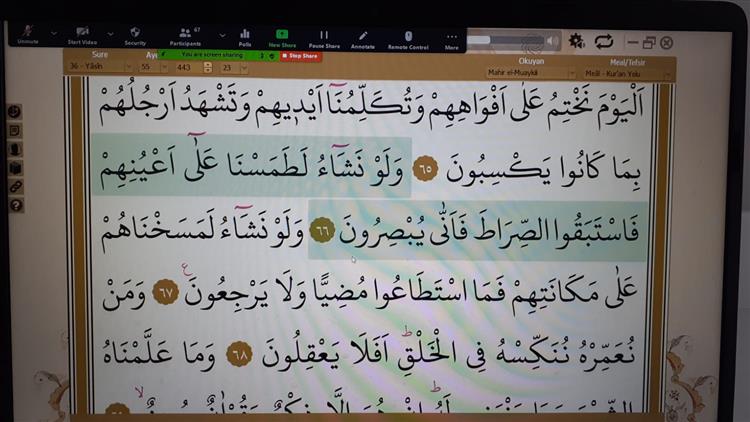 Unmute
Start Video
Security
67
Participants
Polls
New Share
Pause Share
Annotate
Remote Control
More
You are screen sharing
Stop Share
Sure
Okuyan
Meal/Tefsir
36 - Yâsîn
55
443
23
Mahir el-Muaykili
Meâl - Kur'an Yolu
اَلْيَوْمَ نَخْتِمُ عَلٰٓى اَفْوَاهِهِمْ وَتُكَلِّمُنَٓا اَيْد۪يهِمْ وَتَشْهَدُ اَرْجُلُهُمْ
بِمَا كَانُوا يَكْسِبُونَ ٦٥ وَلَوْ نَشَٓاءُ لَطَمَسْنَا عَلٰٓى اَعْيُنِهِمْ
فَاسْتَبَقُوا الصِّرَاطَ فَاَنّٰى يُبْصِرُونَ ٦٦ وَلَوْ نَشَٓاءُ لَمَسَخْنَاهُمْ
عَلٰى مَكَانَتِهِمْ فَمَا اسْتَطَاعُوا مُضِيًّا وَلَا يَرْجِعُونَ ع ٦٧ وَمَنْ
نُعَمِّرْهُ نُنَكِّسْهُ فِي الْخَلْقِۜ اَفَلَا يَعْقِلُونَ ٦٨ وَمَا عَلَّمْنَاهُ